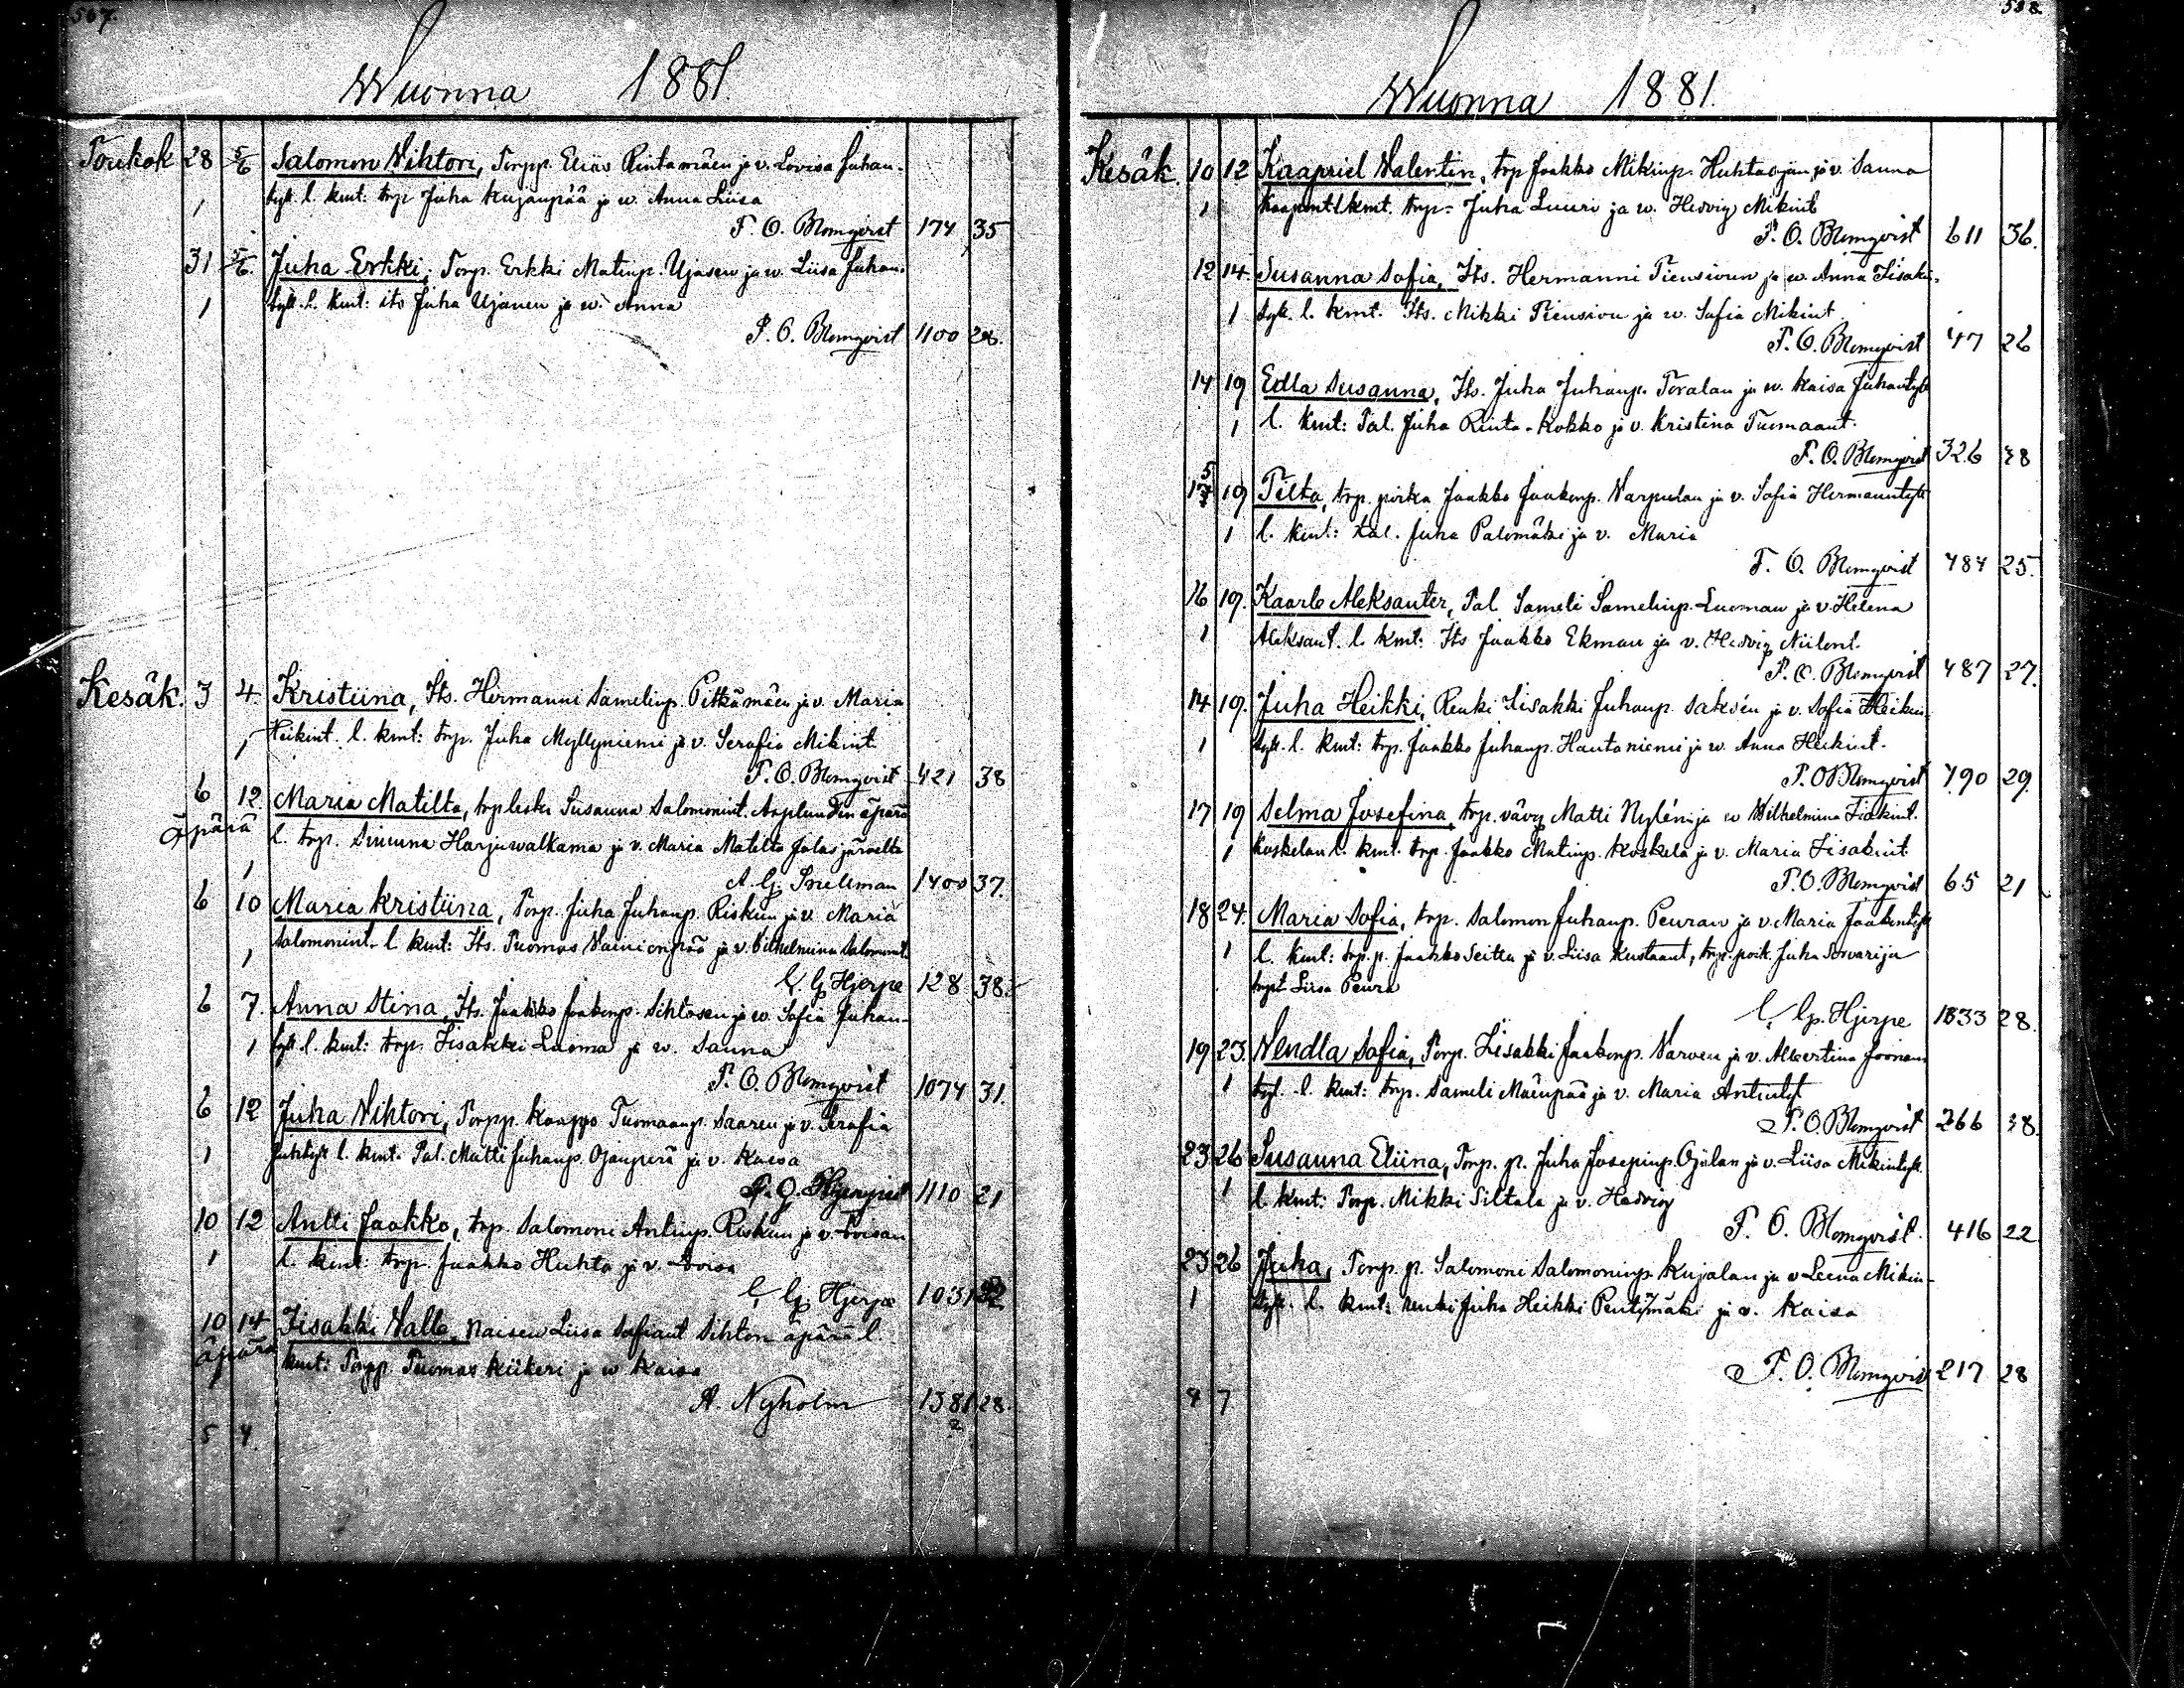 567.
Wuonna 1881.
Toukok 28 5/6 Salomon Wihtori, Torpp. Elias Rintamäen ja v. Lovisa Juhan-
1 tytt. l. kmt: trp. Juha Kujanpää ja w. Anna Liisa
F. O. Blomqvist 174 35
31 5/6. Juha Erkki, Torp. Erkki Matinp. Ujasen ja w. Liisa Juhan-
1 tytt. l. kmt: its Juha Ujanen ja w. Anna
F. O. Blomqvist 1100 28.
Kesäk. 3 4. Kristiina, Its. Hermanni Samelinp. Pitkämäen ja v. Maria
1 Heikint. l. kmt: trp. Juha Myllyniemi ja v. Serafia Mikint.
F. O. Blomqvist 421 38
6 12. Maria Matilta, trp leski Susanna Salomonint. Asplundin äpärä
äpärä l. trp. Simuna Harjuwalkama ja v. Maria Matilta Jalasjärvelta
1 A. G. Snellman 1400 37.
6 10 Maria Kristiina, Torp. Juha Juhanp. Riskun ja v. Maria
1 Salomonint. l. kmt: Its. Tuomas Wainionpää ja v. Vilhelmina Salomont.
C. G. Hjerpe 128 38.
6 7. Anna Stina, Its. Jaakko Jaakonp. Sihtosen ja w. Sofia Juhan-
1 tytt l. kmt: trp. Iisakki Luoma ja w. Sanna
F. O. Blomqvist 1074 31.
6 12 Juha Wihtori, Torpp. Kaappo Tuomaanp. Saaren ja v. Serafia
1 Juhtyt. l. kmt. Tal. Matti Juhanp. Ojanperä ja v. Kaisa
1110 21
10 12 Antti Jaakko, trp. Salomoni Antinp. Riskun ja v. Loisan
1 l. kmt: trp. Jaakko Huhta ja v. Loisa
C. G. Hjerpe 1031 22
10 14 Iisakki Walle, Naisen Liisa Sofiant Sihton äpärä l.
äpärä kmt: Torpp. Tuomas Kiikeri ja w Kaisa
1 A. Nyholm 1381 28.
2
5 4.
568
Wuonna 1881.
Kesäk. 10 12 Kaapriel Walentin, trp Jaakko Mikinp. Huhtaojan ja v. Sanna
1 Kaapint. l. kmt. trp. Juha Luuri ja w. Hedvig Mikint
F. O. Blomqvist 611 36.
12 14. Susanna Sofia, Its. Hermanni Tiensivun ja w. Anna Iisaki-
1 tytt. l. kmt. Its. Mikki Tiensivu ja w. Sofia Mikint.
F. O. Blomqvist 47 26
14 19 Edla Susanna, Its. Juha Juhanp. Toralan ja w. Kaisa Juhantytt
1 l. kmt: Tal. Juha Rinta-Kokko ja v. Kristina Tuomaant.
F. O. Blomqvist 326 38
15 19 Tilta, trp. poika Jaakko Jaakonp. Warpulan ja v. Sofia Hermannintytt
1 l. kmt: tal. Juha Palomäki ja v. Maria
F. O. Blomqvist 484 25.
16 19. Kaarle Aleksanter, Tal Sameli Samelinp. Luoman ja v. Helena
1 Aleksant. l. kmt. Its Jaakko Ekman ja v. Hedvig Niilont.
F. O. Blomqvist 487 27.
14 19. Juha Heikki, Renki Iisakki Juhanp. Saksén ja v. Sofia Heikin
1 tytt. l. kmt: trp. Jaakko Juhanp. Hautaniemi ja w. Anna Heikint.
F. O Blomqvist 790 29.
17 19 Selma Josefina, trp. vävy Matti Nylénin ja w Wilhelmina Iisakint.
1 Koskelan l. kmt. trp. Jaakko Matinp. Koskela ja v. Maria Iisakint.
F. O. Blomqvist 65 21
18 24. Maria Sofia, trp. Salomon Juhanp. Peuran ja v. Maria Jaakontytt
1 l. kmt: trp. p. Jaakko Seitua ja v. Liisa Kustaant, trp. poik. Juha Sorvari ja
trpt Liisa Peura
C. G. Hjerpe 1833 28.
19 23. Wendla Sofia, Torp. Iisakki Jaakonp. Narven ja v. Albertina Joonan
1 tyt. l. kmt: trp. Sameli Mäenpää ja v. Maria Antintyt
F. O. Blomqvist 266 38.
23 26 Susanna Eliina, Torp. p. Juha Josepinp. Ojalan ja v. Liisa Mikintytt.
1 l. kmt: Torp. Mikki Siltala ja v. Hedvig
F. O. Blomqvist. 416 22
23 26 Juha, Torp. p. Salomoni Salomoninp. Kujalan ja v Leena Mikin-
1 tytt. l. kmt: renki Juha Heikki Penttymäki ja v. Kaisa
F. O. Blomqvist 217 28
9 7